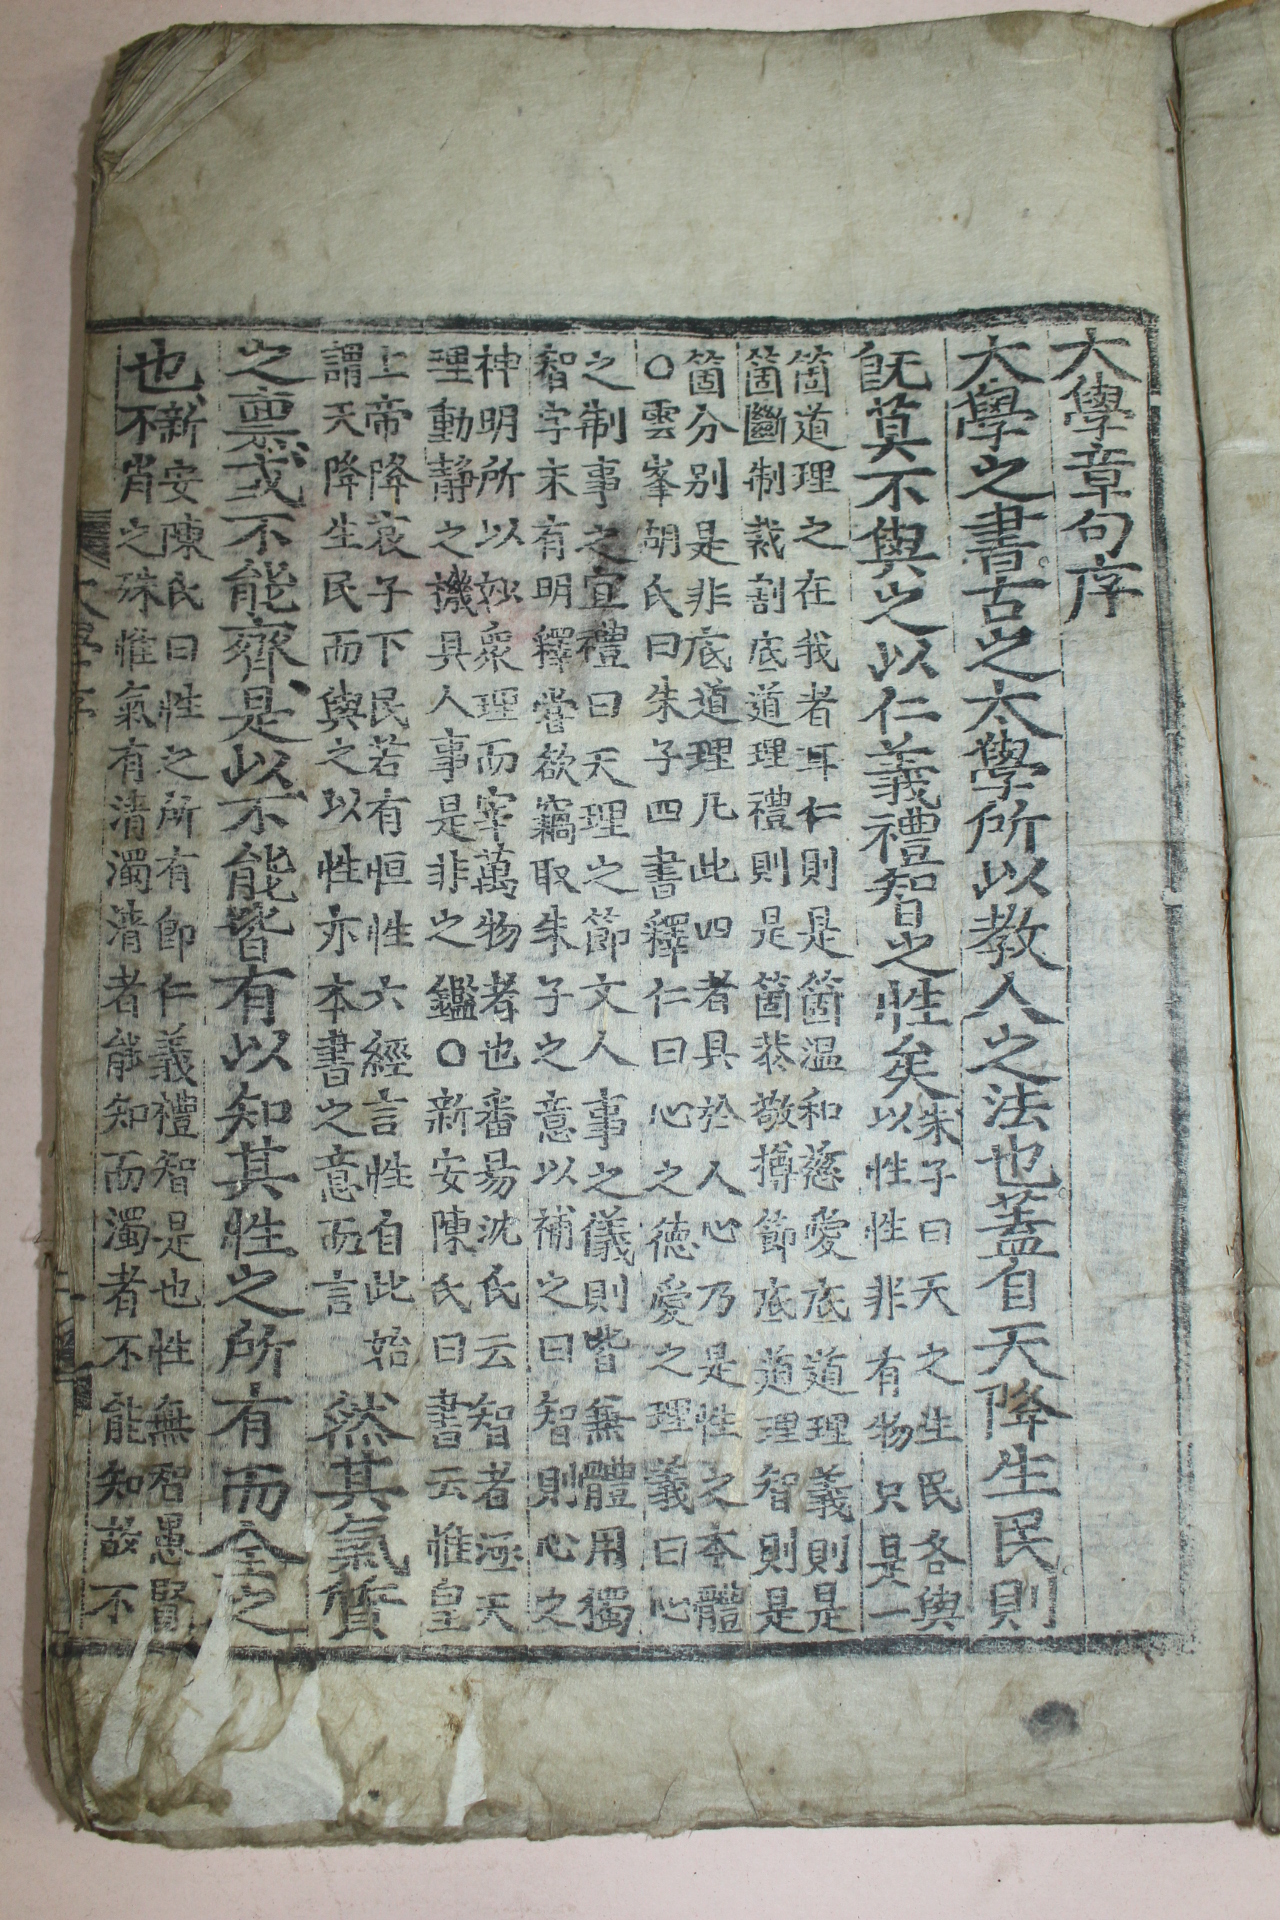 大學章句序
大學之書古之太學所以教人之法也蓋自天降生民則
既莫不與之以仁義禮智之性矣
朱子曰天之生民各與
以性性非有物只是一
箇道理之在我者耳仁則是箇温和慈愛底道理義則是
箇斷制裁割底道理禮則是箇恭敬撙節底道理智則是
箇分別是非底道理凡此四者具於人心乃是性之本體
○雲峯胡氏曰朱子四書釋仁曰心之德愛之理義曰心
之制事之宜禮曰天理之節文人事之儀則皆無體用獨
智字未有明釋嘗欲竊取朱子之意以補之曰智則心之
神明所以妙衆理而宰萬物者也番昜沈氏云智者涵天
理動靜之機具人事是非之鑑○新安陳氏曰書云惟皇
上帝降衷于下民若有恒性六經言性自此始
謂天降生民而與之以性亦本書之意而言
然其氣質
之禀或不能齊是以不能皆有以知其性之所有而全之
也
新安陳氏曰性之所有卽仁義禮智是也性無智愚賢
不肖之殊惟氣有清濁清者能知而濁者不能知故不